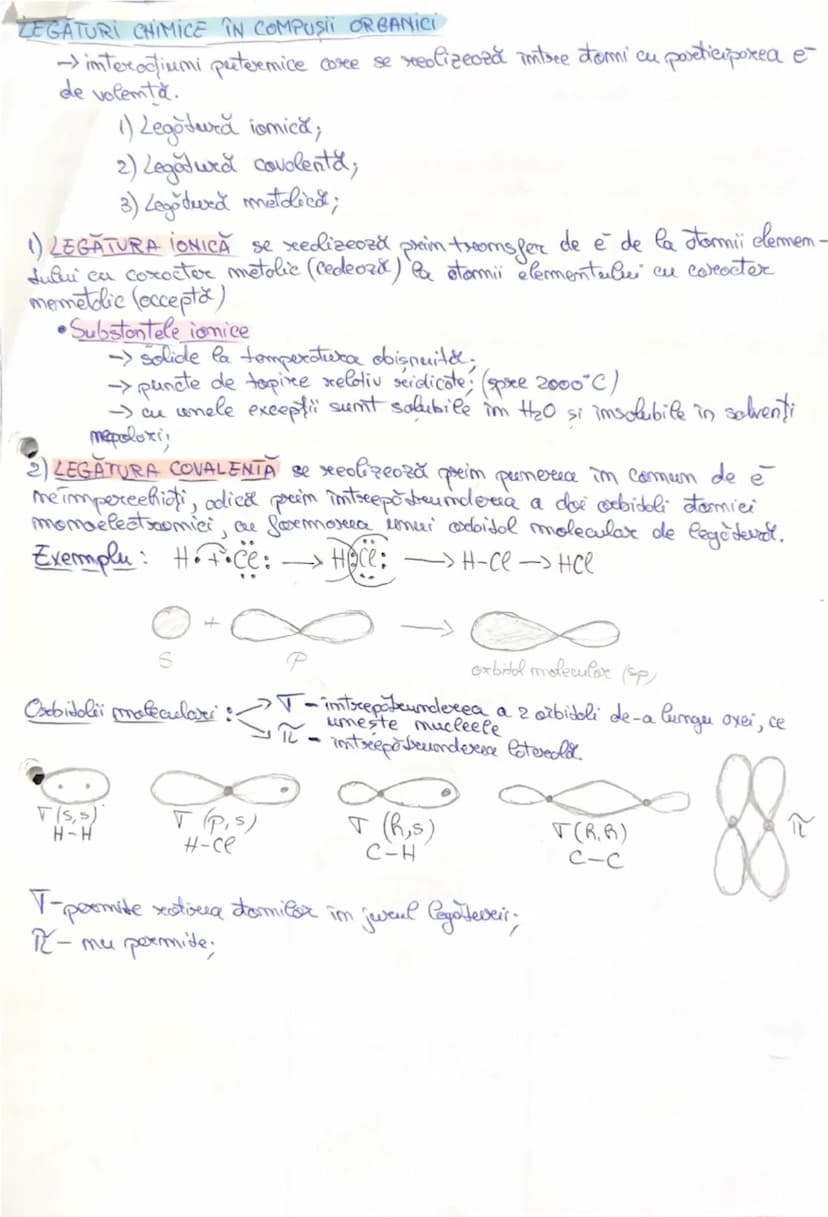 LEGĂTURI CHIMICE ÎN COMPUȘII ORGANICI
→ interacțiuni puternice care se realizează între atomi cu participarea e⁻
de valență.
1) Legătură ionică;
2) Legătură covalentă;
3) Legătură metalică;
1) LEGĂTURA IONICĂ se realizează prin transfer de e⁻ de la atomii elemen-
tului cu caracter metalic (cedează) la atomii elementului cu caracter
nemetalic (acceptă)
• Substanțele ionice
→ solide la temperatura obișnuită;
→ puncte de topire relativ ridicate; (spre 2000°C)
→ cu unele excepții sunt solubile în H₂O și insolubile în solvenți
nepolari;
2) LEGĂTURA COVALENTĂ se realizează prin punerea în comun de e⁻
neîmperecheați, adică prin întrepătrunderea a doi orbitali atomici
monoelectronici, cu formarea unui orbital molecular de legătură.
Exemplu: H• + •Cl: → H:Cl: → H-Cl → HCl
S + P → orbital molecular (sp)
Orbitalii moleculari: → σ - întrepătrunderea a 2 orbitali de-a lungu axei, ce
unește nucleele
→ π - întrepătrunderea laterală.
σ(s,s) σ(p,s) σ(h,s) σ(h,h) π
H-H H-Cl C-H C-C
σ-permite rotirea atomilor în jurul legăturii;
π- nu permite;